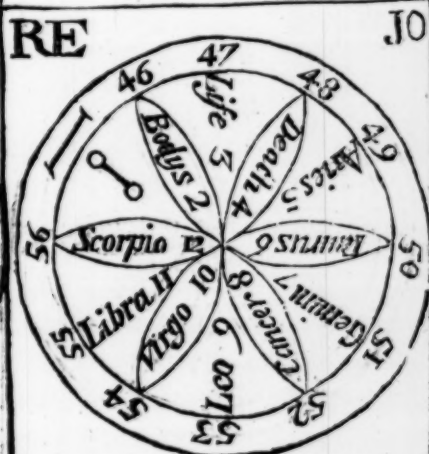 RE
JO
46
47
48
49
50
51
52
53
54
55
56
Bodys 2
Life 3
Death 4
Aries 5
Taurus 6
Gemini 7
Cancer 8
Leo 9
Virgo 10
Libra 11
Scorpio 12